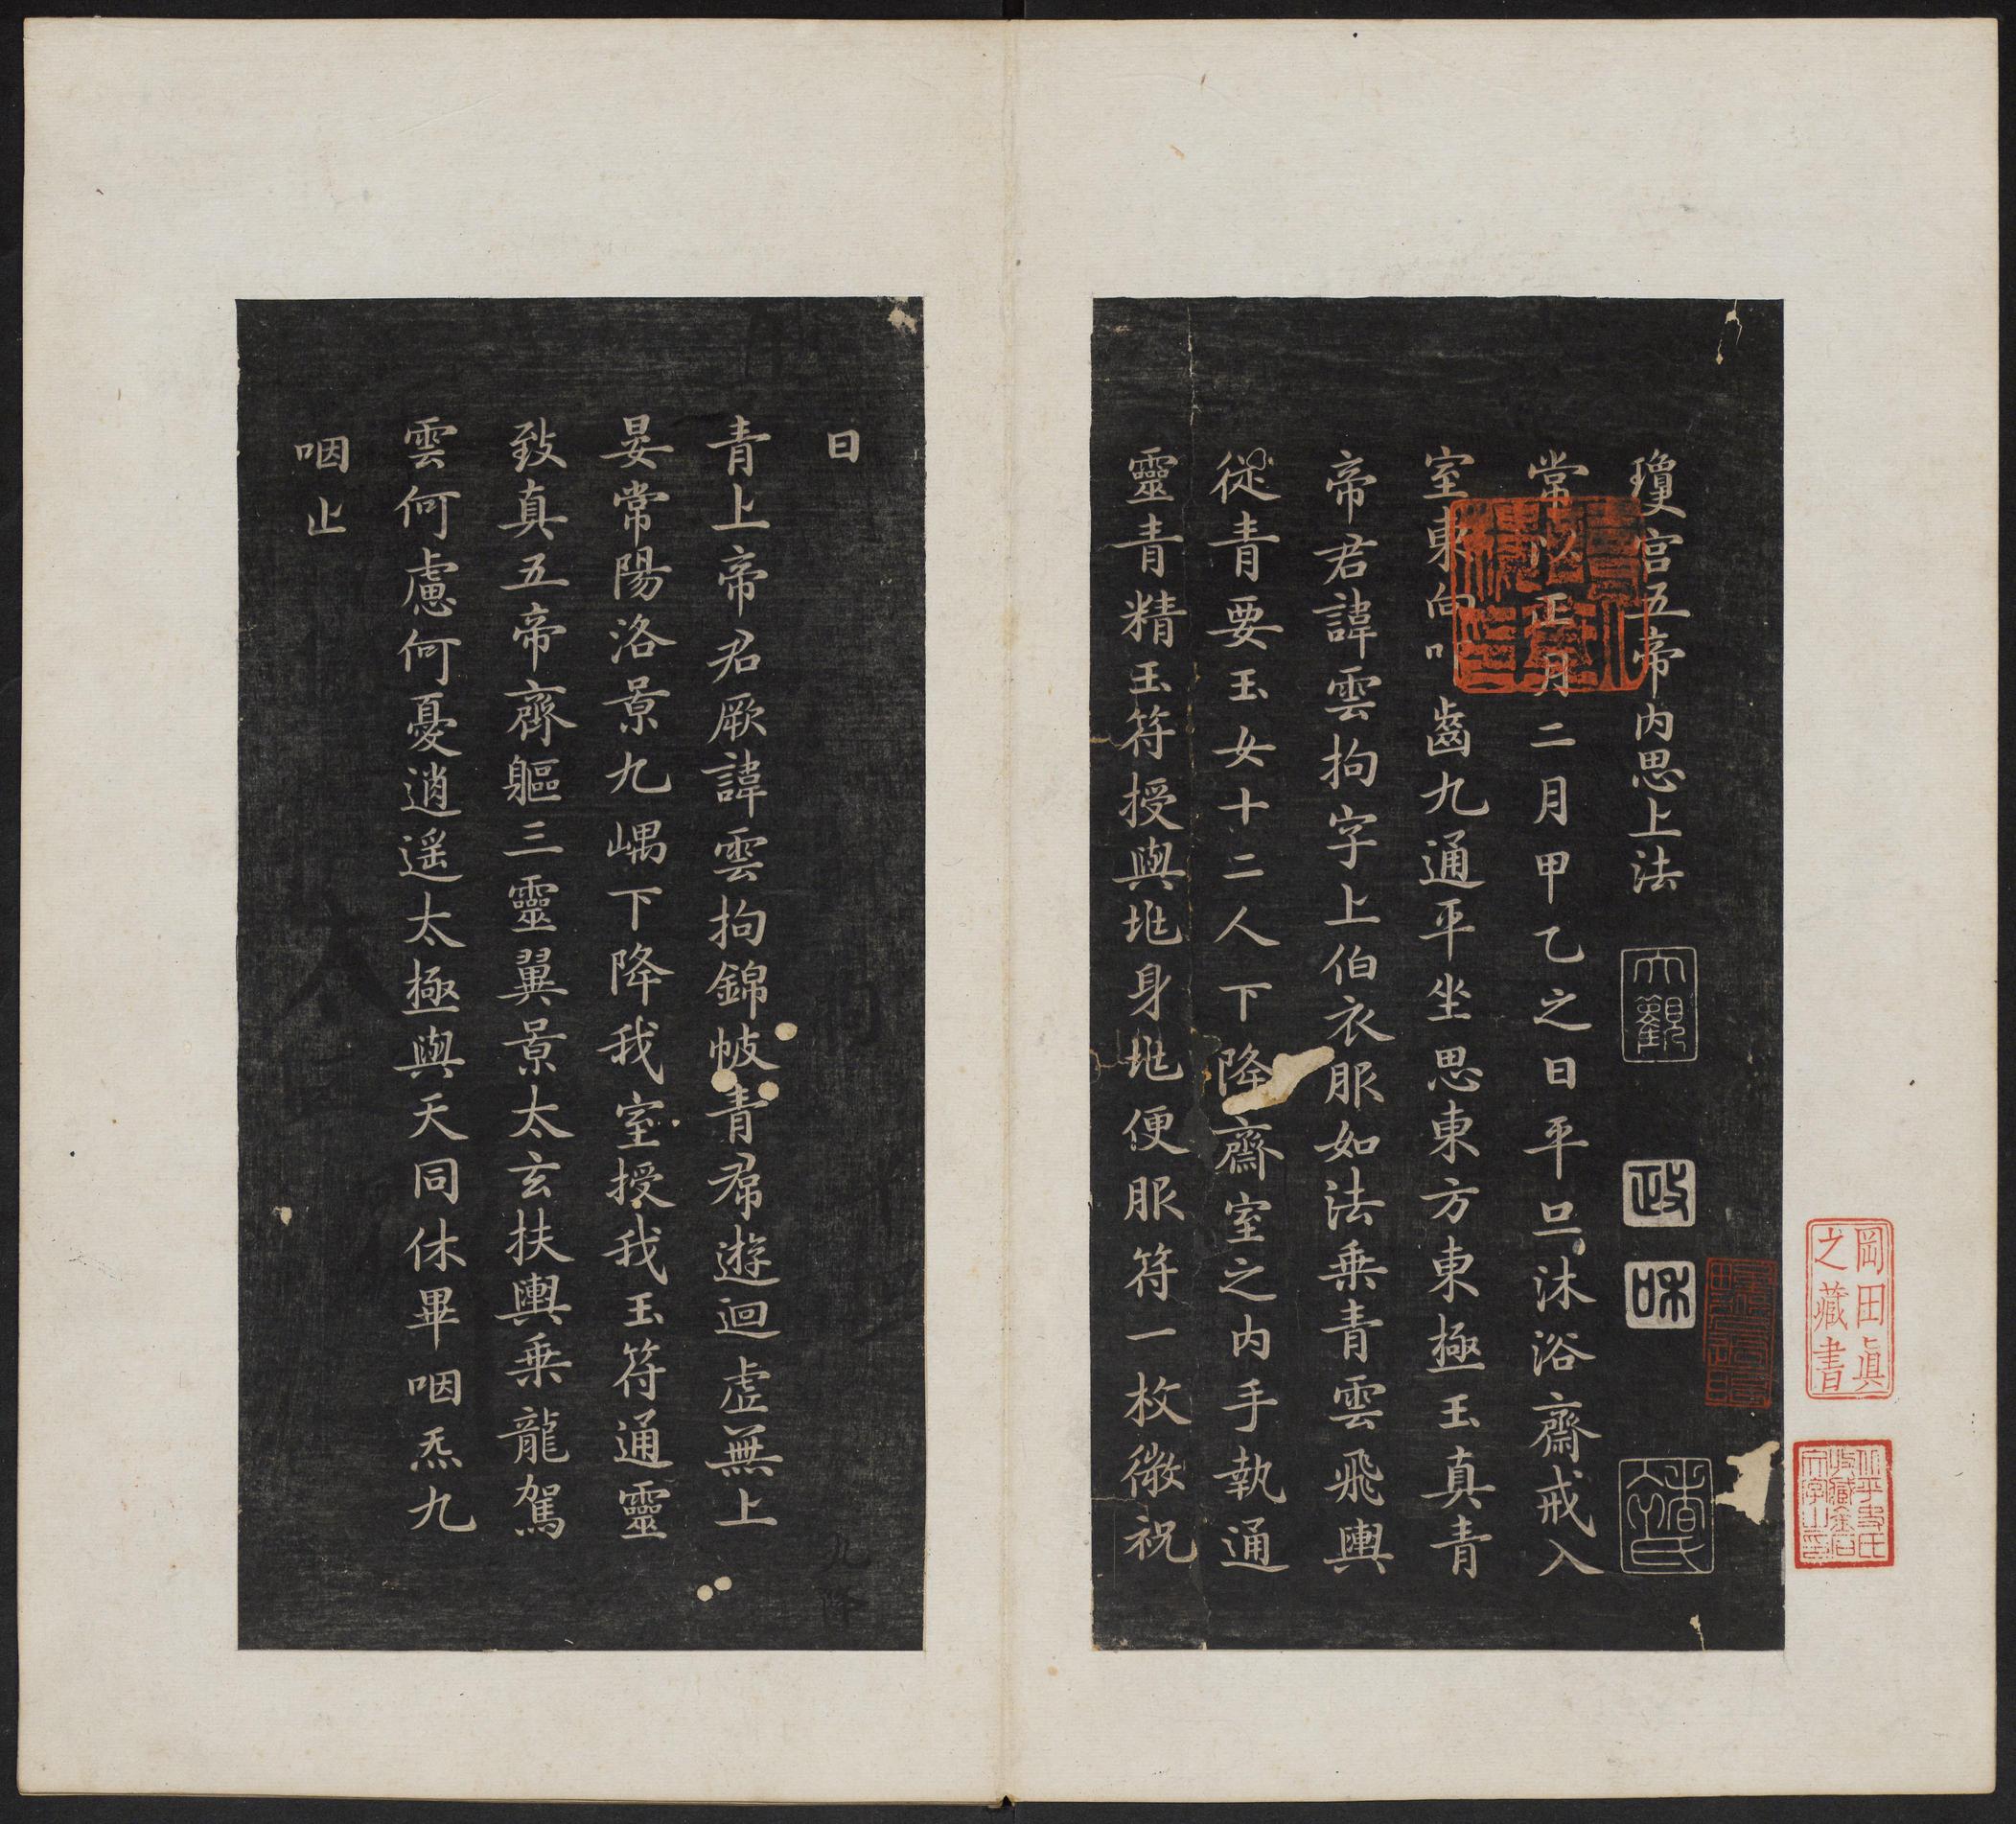 瓊宮五帝内思上法
大觀
政
和
常以正月二月甲乙之日平旦沐浴齋戒入
室東向叩齒九通平坐思東方東極玉真青
帝君諱雲拘字上伯衣服如法乘青雲飛輿
從青要玉女十二人下降齋室之内手執通
靈青精玉符授與兆身兆便服符一枚微祝
曰
青上帝君厥諱雲拘錦帔青帬遊迴虛無上
晏常陽洛景九嵎下降我室授我玉符通靈
致真五帝齊軀三靈翼景太玄扶輿乘龍駕
雲何慮何憂逍遥太極與天同休畢咽炁九
咽止
岡田眞
之藏書